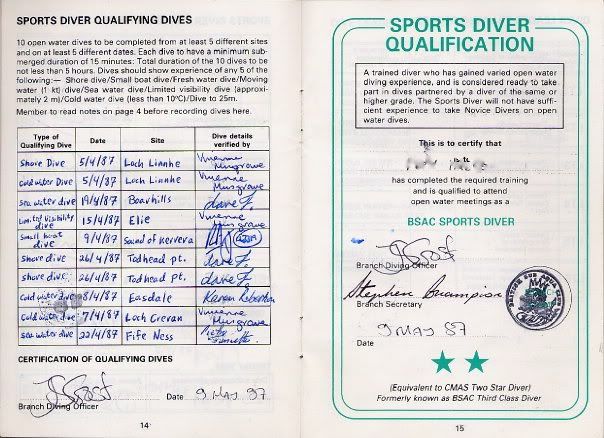 SPORTS DIVER QUALIFYING DIVES
10 open water dives to be completed from at least 5 different sites
and on at least 5 different dates. Each dive to have a minimum sub-
merged duration of 15 minutes: Total duration of the 10 dives to be
not less than 5 hours. Dives should show experience of any 5 of the
following:— Shore dive/Small boat dive/Fresh water dive/Moving
water (1 kt) dive/Sea water dive/Limited visibility dive (approxi-
mately 2 m)/Cold water dive (less than 10°C)/Dive to 25m.
Member to read notes on page 4 before recording dives here.
Type of Qualifying Dive Date Site Dive details verified by
Shore Dive 5/4/87 Loch Linnhe Vivienne Musgrave
Cold water Dive 5/4/87 Loch Linnhe Vivienne Musgrave
Sea water dive 19/4/87 Boarhills Dave F.
Limited Visibility dive 15/4/87 Elie Vivienne Musgrave
Small boat dive 9/4/87 Sound of Kerrera
Shore dive 26/4/87 Todhead pt. Dave F.
Shore dive 26/4/87 Todhead pt. Dave F.
Cold water dive 8/4/87 Easdale Karen Robertson
Cold water dive 7/4/87 Loch Creran Vivienne Musgrave
Sea water dive 22/4/87 Fife Ness Peter
CERTIFICATION OF QUALIFYING DIVES
Date 9 May 87
Branch Diving Officer
14
SPORTS DIVER
QUALIFICATION
A trained diver who has gained varied open water
diving experience, and is considered ready to take
part in dives partnered by a diver of the same or
higher grade. The Sports Diver will not have suffi-
cient experience to take Novice Divers on open
water dives.
This is to certify that
has completed the required training
and is qualified to attend
open water meetings as a
BSAC SPORTS DIVER
Branch Diving Officer
Stephen
Branch Secretary
9 MAY 87
Date
(Equivalent to CMAS Two Star Diver)
Formerly known as BSAC Third Class Diver
15